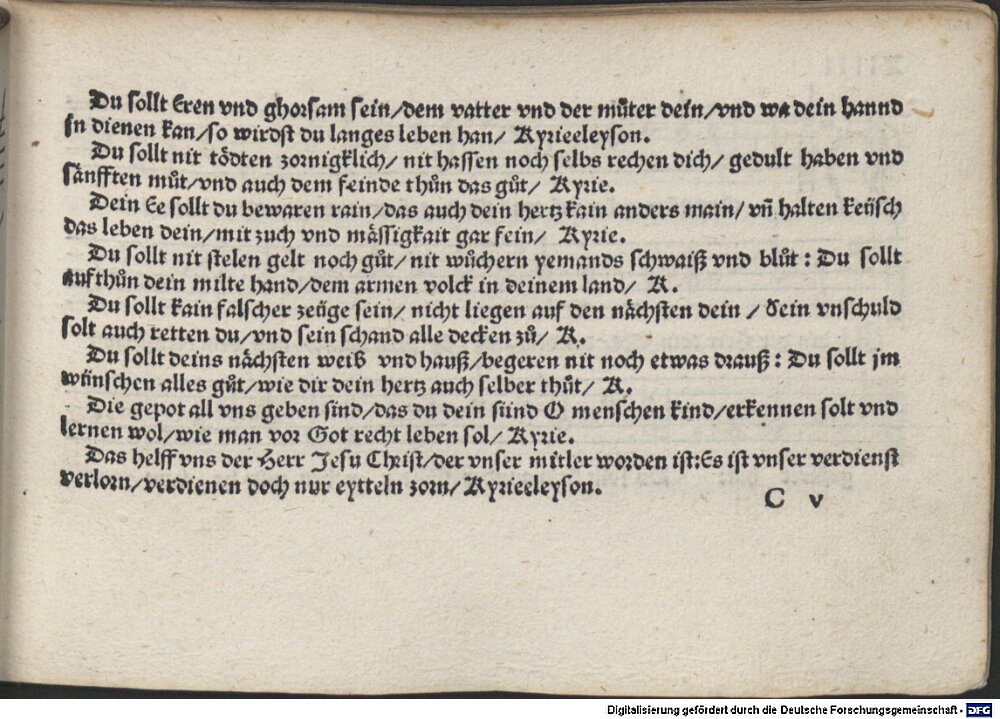 Du sollt Eren vnd ghorsam sein/dem vatter vnd der můter dein/vnd wa dein hannd
jn dienen kan/so wirdst du langes leben han/ Kyrieeleyson.
Du sollt nit tödten zornigklich/ nit hassen noch selbs rechen dich/ gedult haben vnd
sänfften můt/vnd auch dem feinde thůn das gůt/ Kyrie.
Dein Ee sollt du bewaren rain/das auch dein hertz kain anders main/ vñ halten keüsch
das leben dein/mit zuch vnd mässigkait gar fein/ Kyrie.
Du sollt nit stelen gelt noch gůt/ nit wůchern yemands schwaiß vnd blůt: Du sollt
aufthůn dein milte hand/dem armen volck in deinem land/ K.
Du sollt kain falscher zeüge sein/ nicht liegen auf den nächsten dein / Sein vnschuld
solt auch retten du/vnd sein schand alle decken zů/ K.
Du sollt deins nächsten weib vnd hauß/begeren nit noch etwas drauß: Du sollt jm
wünschen alles gůt/wie dir dein hertz auch selber thůt/ K.
Die gepot all vns geben sind/das du dein sünd O menschen kind/erkennen solt vnd
lernen wol/wie man vor Got recht leben sol/ Kyrie.
Das helff vns der Herr Jesu Christ/der vnser mitler worden ist:Es ist vnser verdienst
verlorn/verdienen doch nur eytteln zorn/ Kyrieeleyson.
C v
Digitalisierung gefördert durch die Deutsche Forschungsgemeinschaft - DFG